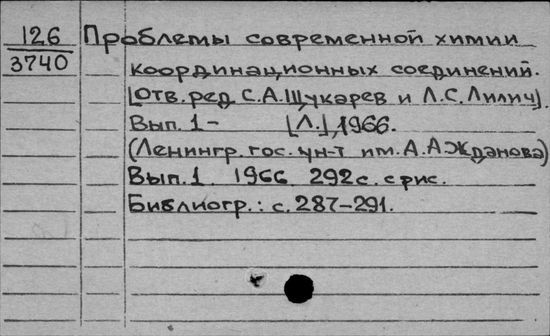 126
3740
Проблемы современной химии
координационных соединений.
[отв. ред. С.А. Щукарев и Л.С. Лилич].
Вып. 1- [Л.], 1966.
(Ленингр. гос. ун-т им. А.А Жданова)
Вып. 1. 1966. 292с. с рис.
Библиогр.: с. 287-291.